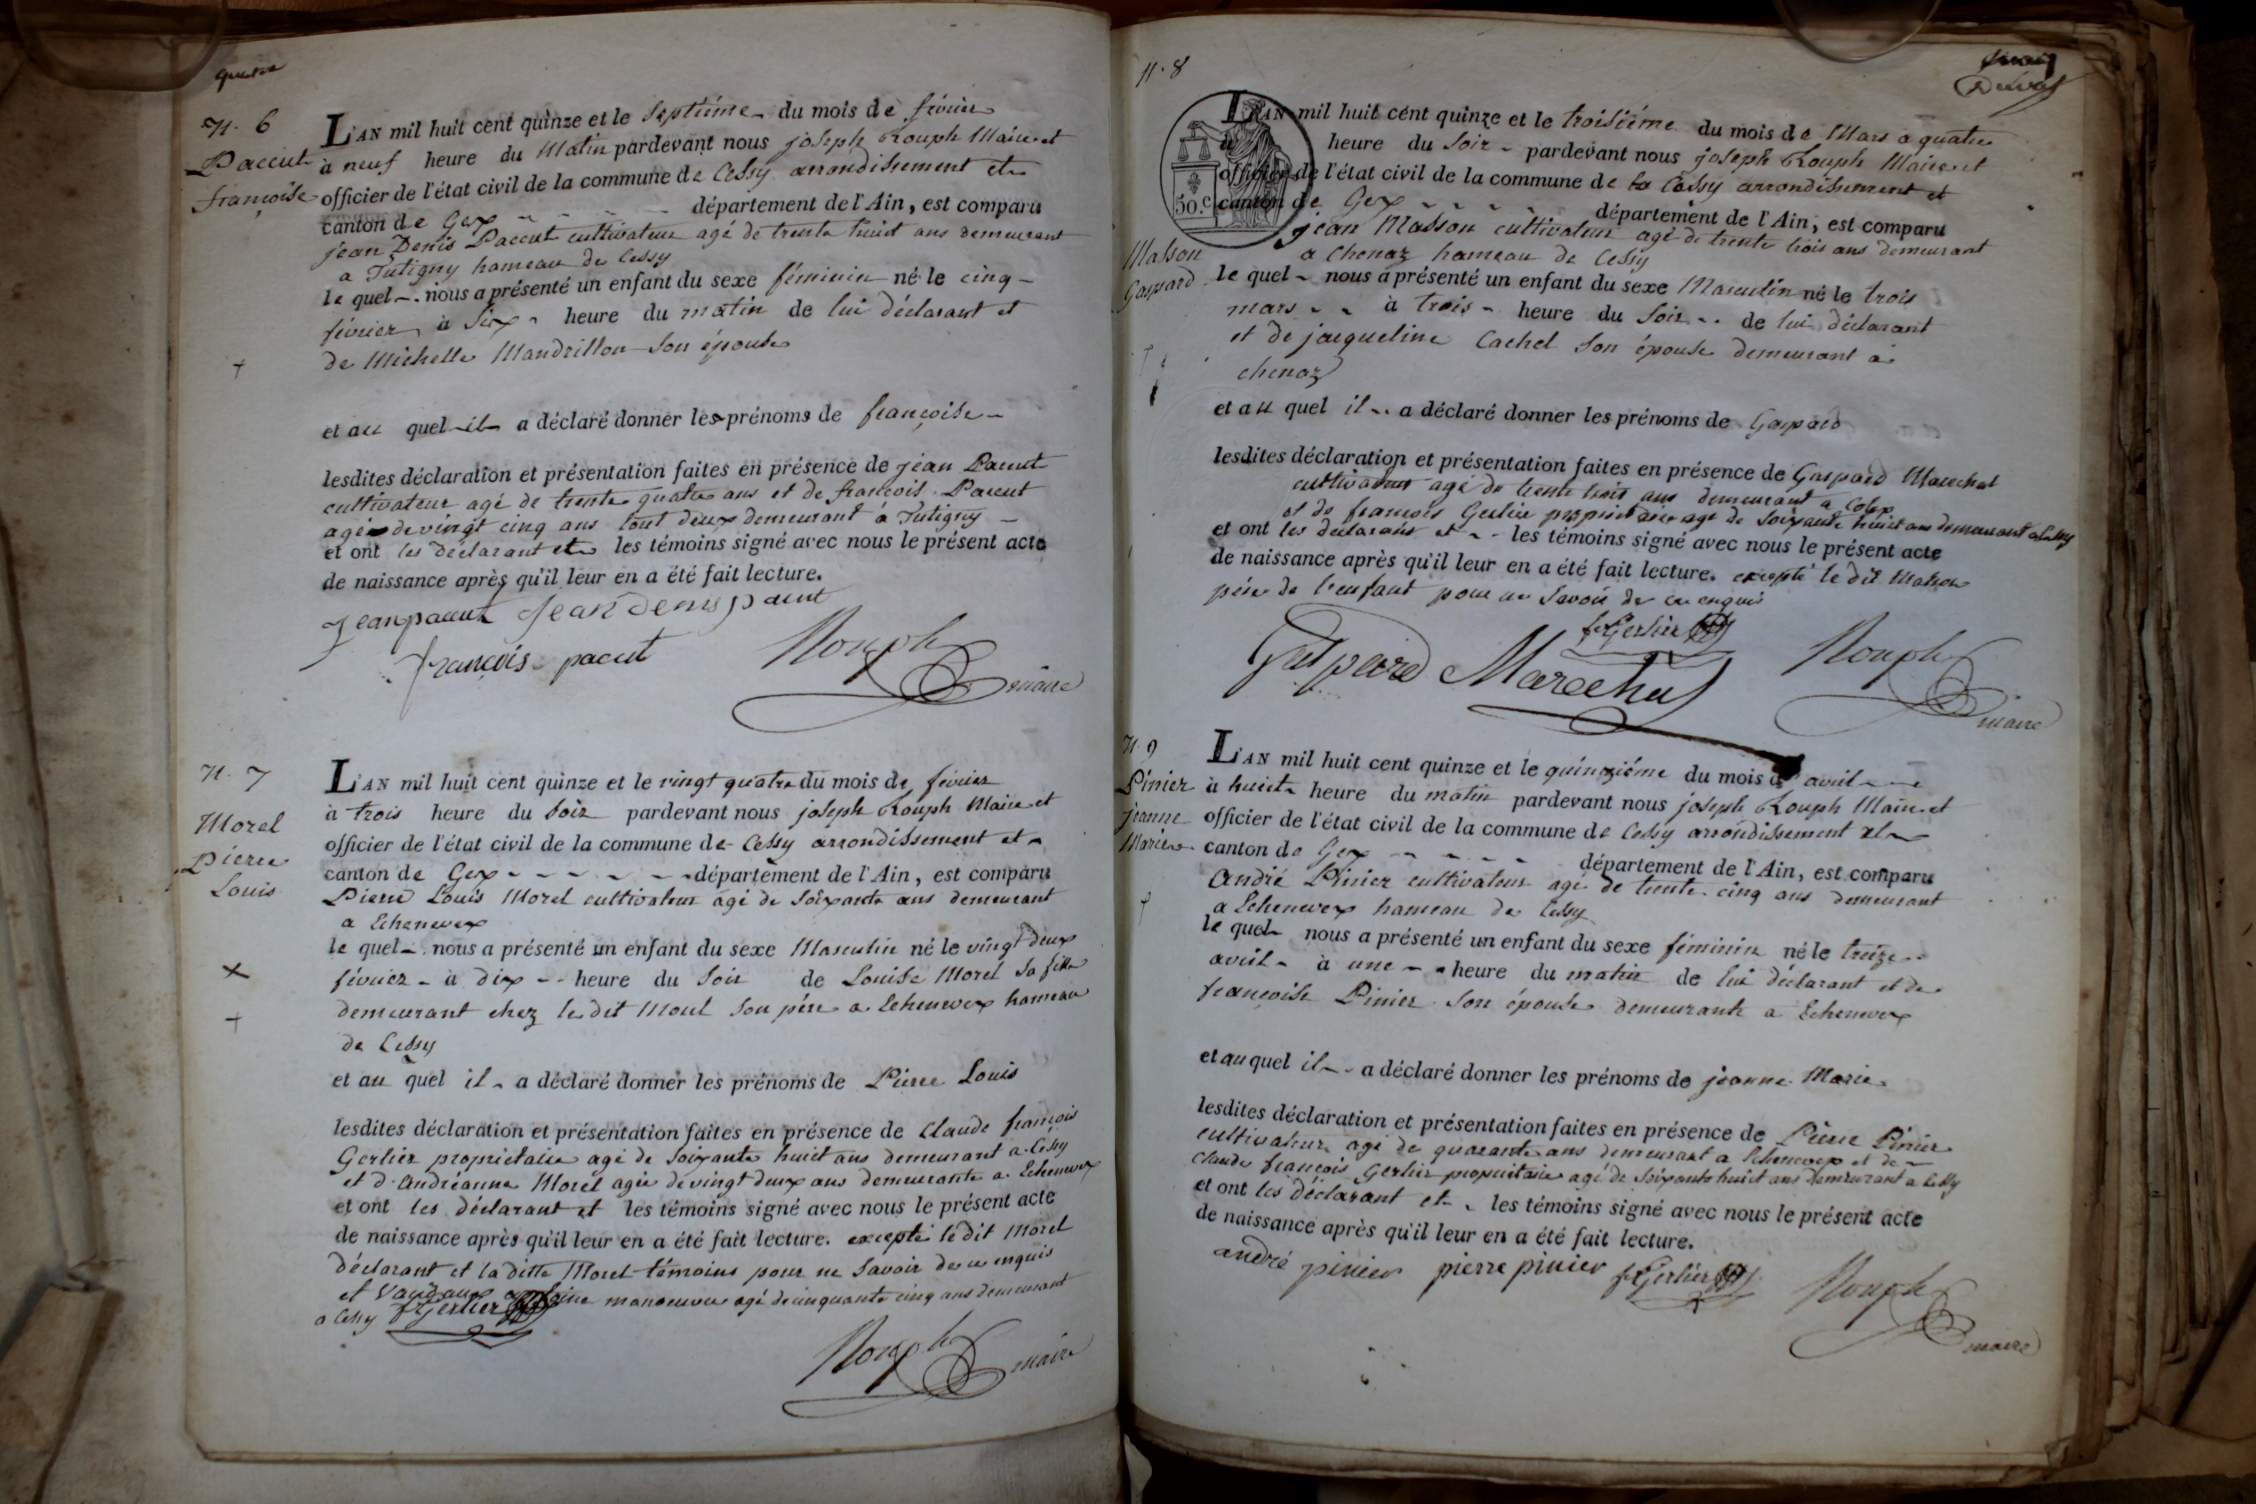 N. 6
Paccut
françoise
L'AN mil huit cent quinze et le septième du mois de février
à neuf heure du Matin pardevant nous joseph Rouph Maire et
officier de l'état civil de la commune de Cessy arrondissement et
canton de Gex département de l'Ain, est comparu
jean Denis Paccut cultivateur agé de trente huit ans demeurant
a Tutigny hameau de Cessy
le quel nous a présenté un enfant du sexe féminin né le cinq
février à Six heure du matin de lui déclarant et
de Michelle Mandrillon son épouse
et au quel il a déclaré donner les prénoms de françoise
lesdites déclaration et présentation faites en présence de jean Paccut
cultivateur agé de trente quatre ans et de françois Paccut
agé de vingt cinq ans tout deux demeurant à Tutigny
et ont les déclarant et les témoins signé avec nous le présent acte
de naissance après qu'il leur en a été fait lecture.
Jean paccut Jean denis paccut
françois paccut Rouph maire
N. 7
Morel
Pierre
Louis
L'AN mil huit cent quinze et le vingt quatre du mois de février
à trois heure du Soir pardevant nous joseph Rouph Maire et
officier de l'état civil de la commune de Cessy arrondissement et
canton de Gex département de l'Ain, est comparu
Pierre Louis Morel cultivateur agé de Soixante ans demeurant
a Echenevex
le quel nous a présenté un enfant du sexe Masculin né le vingt deux
février à dix heure du Soir de Louise Morel sa fille
demeurant chez le dit Morel son père a Echenevex hameau
de Cessy
et au quel il a déclaré donner les prénoms de Pierre Louis
lesdites déclaration et présentation faites en présence de Claude françois
Gerlier propriétaire agé de Soixante huit ans demeurant a Cessy
et d'Andréanne Morel agée de vingt deux ans demeurante a Echenevex
et ont les déclarant et les témoins signé avec nous le présent acte
de naissance après qu'il leur en a été fait lecture. excepté le dit Morel
déclarant et la ditte Morel témoins pour ne Savoir de ce enquis
et manoeuvre agé de cinquante cinq ans demeurant
a Cessy f Gerlier
Rouph maire
N. 8
Masson
Gaspard
50. c.
L'AN mil huit cent quinze et le troisiéme du mois de Mars a quatre
heure du Soir pardevant nous joseph Rouph Maire et
officier de l'état civil de la commune de Cessy arrondissement et
canton de Gex département de l'Ain, est comparu
jean Masson cultivateur agé de trente trois ans demeurant
a Chenaz hameau de Cessy
le quel nous a présenté un enfant du sexe Masculin né le trois
mars à trois heure du Soir de lui déclarant
et de jacqueline Cachel son épouse demeurant à
chenaz
et au quel il a déclaré donner les prénoms de Gaspard
lesdites déclaration et présentation faites en présence de Gaspard Marechal
cultivateur agé de trente trois ans demeurant a
et de françois Gerlier propriétaire agé de Soixante huit ans demeurant a Cessy
et ont les déclarant et les témoins signé avec nous le présent acte
de naissance après qu'il leur en a été fait lecture. excepté le dit Masson
père de l'enfant pour ne Savoir de ce enquis
f Gerlier
Gaspard Marechal Rouph maire
N. 9
Pinier
jeanne
Marie
L'AN mil huit cent quinze et le quinziéme du mois d' avril
à huit heure du matin pardevant nous joseph Rouph Maire et
officier de l'état civil de la commune de Cessy arrondissement et
canton de Gex département de l'Ain, est comparu
André Pinier cultivateur agé de trente cinq ans demeurant
a Echenevex hameau de Cessy
le quel nous a présenté un enfant du sexe féminin né le treize
avril à une heure du matin de lui déclarant et de
françoise Pinier son épouse demeurante a Echenevex
et au quel il a déclaré donner les prénoms de jeanne Marie
lesdites déclaration et présentation faites en présence de Pierre Pinier
cultivateur agé de quarante ans demeurant a Echenevex et de
Claude françois Gerlier propriétaire agé de Soixante huit ans demeurant a Cessy
et ont les déclarant et les témoins signé avec nous le présent acte
de naissance après qu'il leur en a été fait lecture.
andré pinier pierre pinier f Gerlier Rouph
maire